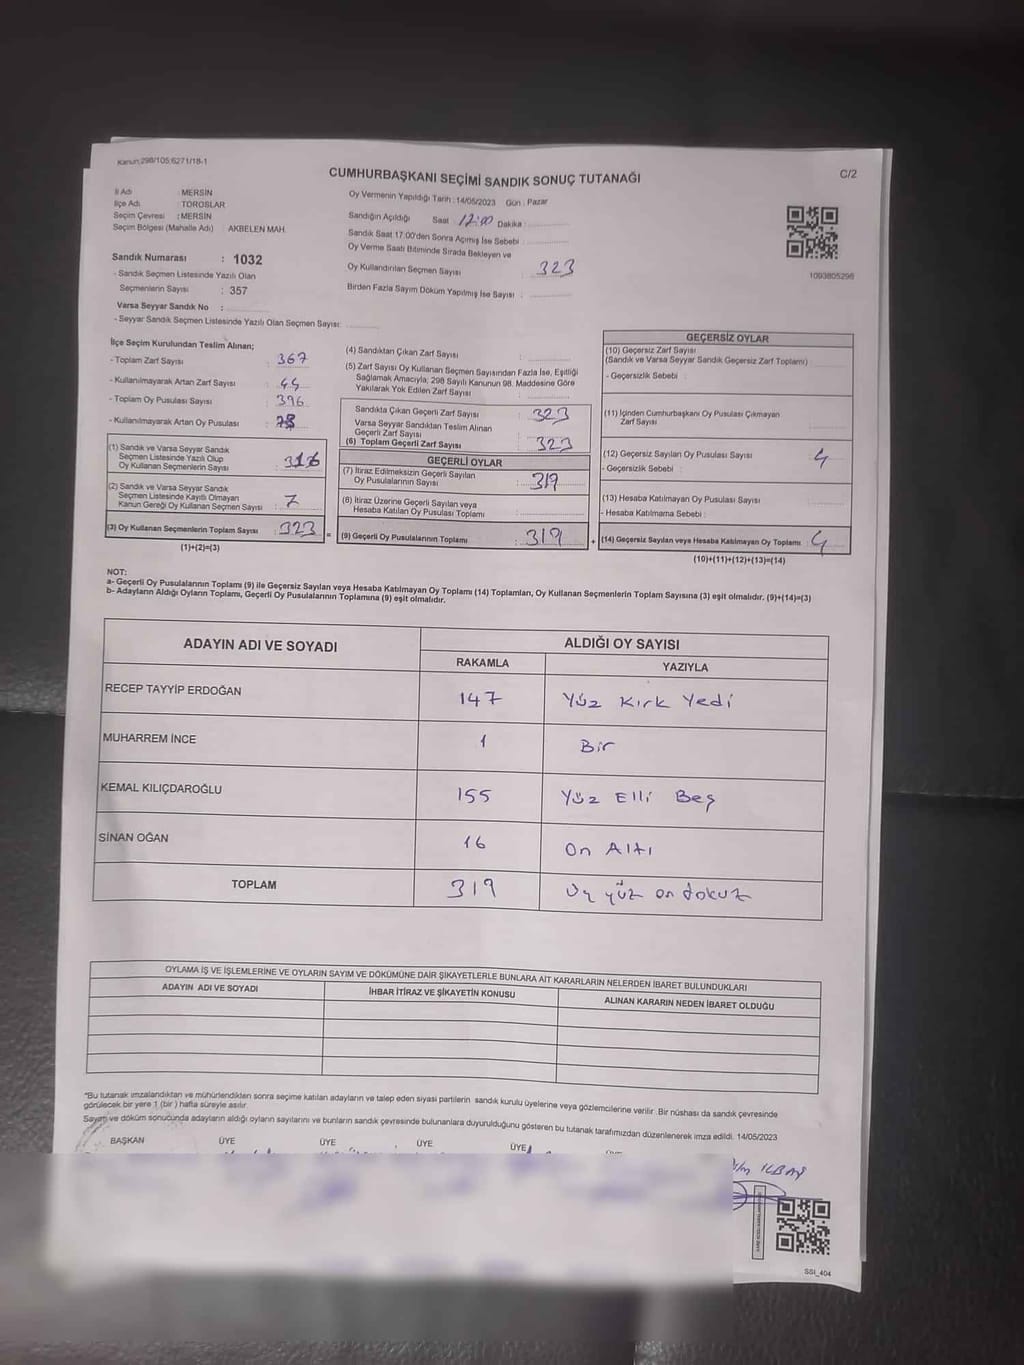 Kanun;298/105;6271/18-1
CUMHURBAŞKANI SEÇİMİ SANDIK SONUÇ TUTANAĞI
C/2
İl Adı : MERSİN
İlçe Adı : TOROSLAR
Seçim Çevresi : MERSİN
Seçim Bölgesi (Mahalle Adı) : AKBELEN MAH.
Sandık Numarası : 1032
- Sandık Seçmen Listesinde Yazılı Olan
Seçmenlerin Sayısı : 357
Varsa Seyyar Sandık No :
- Seyyar Sandık Seçmen Listesinde Yazılı Olan Seçmen Sayısı:
Oy Vermenin Yapıldığı Tarih : 14/05/2023 Gün : Pazar
Sandığın Açıldığı Saat : 17:00 Dakika :
Sandık Saat 17:00'den Sonra Açılmış İse Sebebi :
Oy Verme Saati Bitiminde Sırada Bekleyen ve
Oy Kullandırılan Seçmen Sayısı : 323
Birden Fazla Sayım Döküm Yapılmış İse Sayısı :
1093805296
İlçe Seçim Kurulundan Teslim Alınan;
- Toplam Zarf Sayısı : 367
- Kullanılmayarak Artan Zarf Sayısı : 44
- Toplam Oy Pusulası Sayısı : 396
- Kullanılmayarak Artan Oy Pusulası :
(1) Sandık ve Varsa Seyyar Sandık
Seçmen Listesinde Yazılı Olup
Oy Kullanan Seçmenlerin Sayısı : 316
(2) Sandık ve Varsa Seyyar Sandık
Seçmen Listesinde Kayıtlı Olmayan
Kanun Gereği Oy Kullanan Seçmen Sayısı : 7
(3) Oy Kullanan Seçmenlerin Toplam Sayısı : 323
(1)+(2)=(3)
(4) Sandıktan Çıkan Zarf Sayısı :
(5) Zarf Sayısı Oy Kullanan Seçmen Sayısından Fazla İse, Eşitliği
Sağlamak Amacıyla; 298 Sayılı Kanunun 98. Maddesine Göre
Yakılarak Yok Edilen Zarf Sayısı :
Sandıkta Çıkan Geçerli Zarf Sayısı : 323
Varsa Seyyar Sandıktan Teslim Alınan
Geçerli Zarf Sayısı :
(6) Toplam Geçerli Zarf Sayısı : 323
GEÇERLİ OYLAR
(7) İtiraz Edilmeksizin Geçerli Sayılan
Oy Pusulalarının Sayısı : 319
(8) İtiraz Üzerine Geçerli Sayılan veya
Hesaba Katılan Oy Pusulası Toplamı :
(9) Geçerli Oy Pusulalarının Toplamı : 319
GEÇERSİZ OYLAR
(10) Geçersiz Zarf Sayısı
(Sandık ve Varsa Seyyar Sandık Geçersiz Zarf Toplamı) :
- Geçersizlik Sebebi :
(11) İçinden Cumhurbaşkanı Oy Pusulası Çıkmayan
Zarf Sayısı
(12) Geçersiz Sayılan Oy Pusulası Sayısı : 4
- Geçersizlik Sebebi :
(13) Hesaba Katılmayan Oy Pusulası Sayısı
- Hesaba Katılmama Sebebi :
(14) Geçersiz Sayılan veya Hesaba Katılmayan Oy Toplamı : 4
(10)+(11)+(12)+(13)=(14)
NOT:
a- Geçerli Oy Pusulalarının Toplamı (9) ile Geçersiz Sayılan veya Hesaba Katılmayan Oy Toplamı (14) Toplamları, Oy Kullanan Seçmenlerin Toplam Sayısına (3) eşit olmalıdır. (9)+(14)=(3)
b- Adayların Aldığı Oyların Toplamı, Geçerli Oy Pusulalarının Toplamına (9) eşit olmalıdır.
ADAYIN ADI VE SOYADI ALDIĞI OY SAYISI
RAKAMLA YAZIYLA
RECEP TAYYİP ERDOĞAN 147 Yüz Kırk Yedi
MUHARREM İNCE 1 Bir
KEMAL KILIÇDAROĞLU 155 Yüz Elli Beş
SİNAN OĞAN 16 On Altı
TOPLAM 319 Üç yüz on dokuz
OYLAMA İŞ VE İŞLEMLERİNE VE OYLARIN SAYIM VE DÖKÜMÜNE DAİR ŞİKAYETLERLE BUNLARA AİT KARARLARIN NELERDEN İBARET BULUNDUKLARI
ADAYIN ADI VE SOYADI İHBAR İTİRAZ VE ŞİKAYETİN KONUSU ALINAN KARARIN NEDEN İBARET OLDUĞU
"Bu tutanak imzalandıktan ve mühürlendikten sonra seçime katılan adayların ve talep eden siyasi partilerin sandık kurulu üyelerine veya gözlemcilerine verilir. Bir nüshası da sandık çevresinde
görülecek bir yere 1 (bir) hafta süreyle asılır.
Sayım ve döküm sonucunda adayların aldığı oyların sayılarını ve bunların sandık çevresinde bulunanlara duyurulduğunu gösteren bu tutanak tarafımızdan düzenlenerek imza edildi. 14/05/2023
BAŞKAN ÜYE ÜYE ÜYE ÜYE
SSI_404